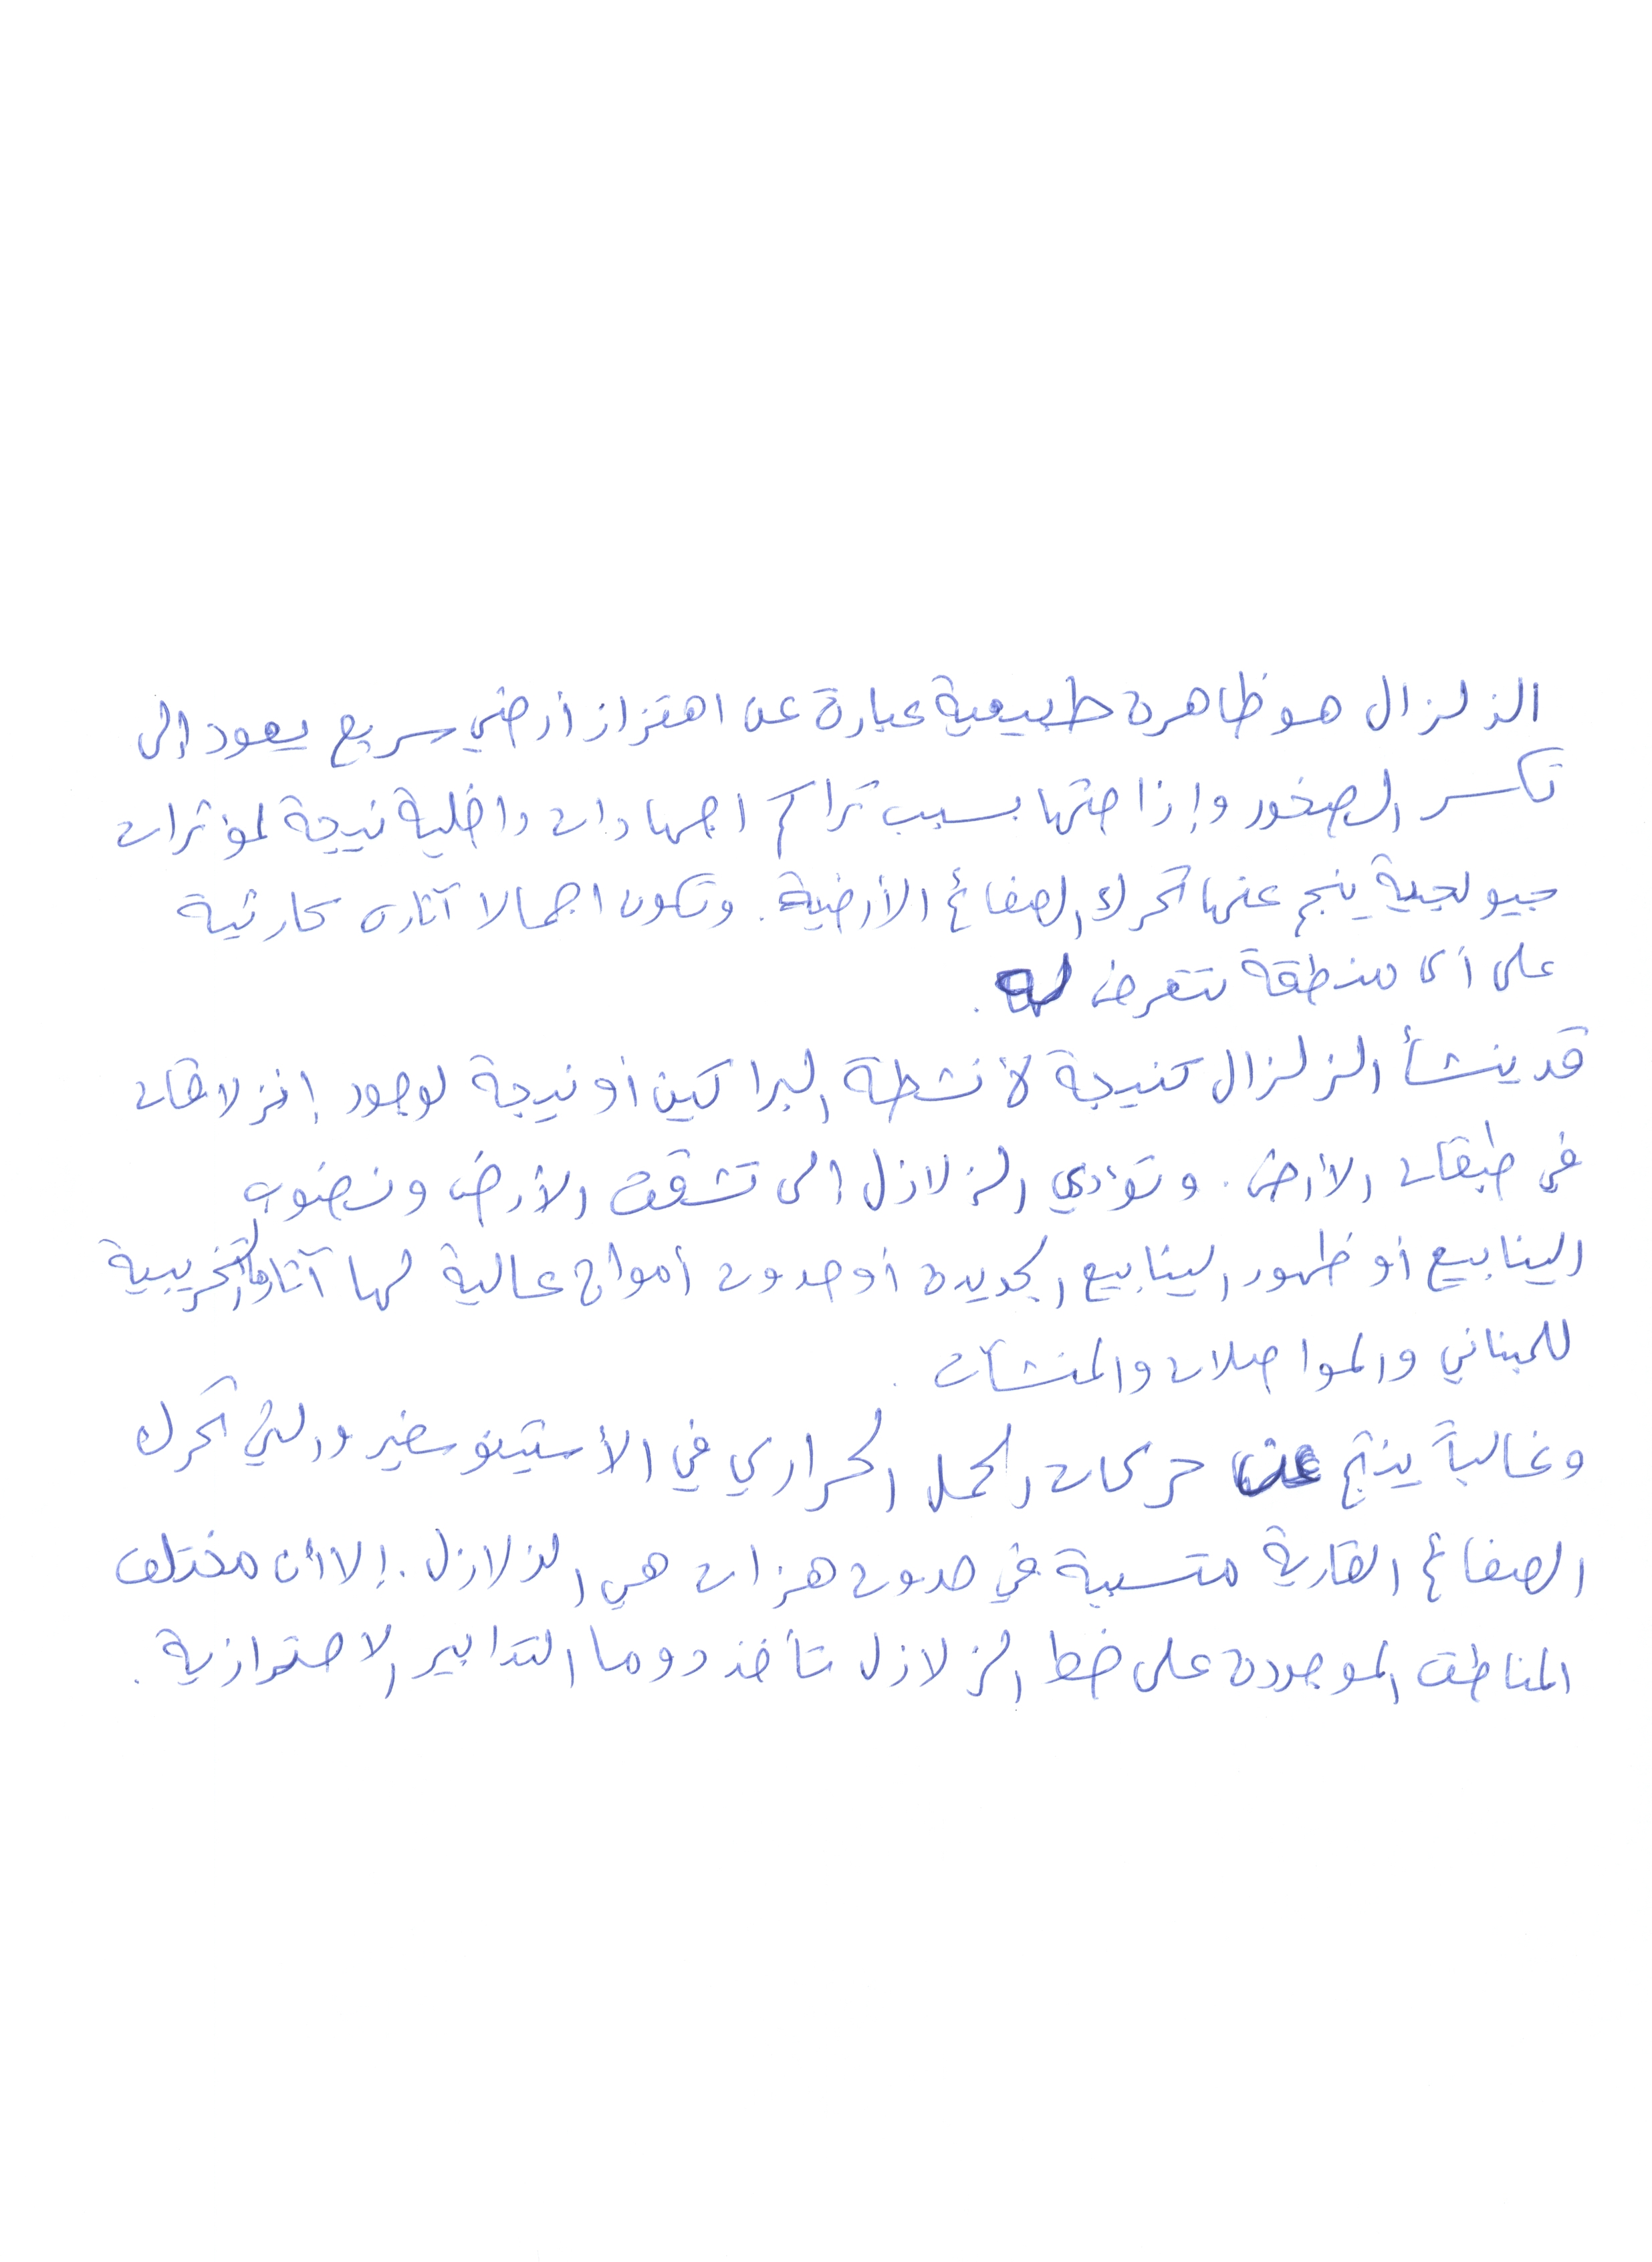 الزلزال هو ظاهرة طبيعية عبارة عن اهتزاز أرضي سريع يعود إلى
تكسر الصخور وإزاحتها بسبب تراكم اجهادات داخلية نتيجة لمؤثرات
جيولجية ينجم عنها تحرك الصفائح الأرضية. وتكون اجمالا آثاره كارثية
على أى منطقة تتعرض له.
قد ينشأ الزلزال كنتيجة لأنشطة البراكين أو نتيجة لوجود إنزلاقات
في طبقات الاأرض. وتؤدي الزلازل الى تشقق الأرض ونضوب
الينابيع أو ظهور الينابيع الجديدة أو حدوث أمواج عالية لها آثارها التخريبية
للمباني والمواصلات والمنشآت.
وغالباً ينتج عن حركات الحمل الحراري في الأستينوسفير والتي تحرك
الصفائح القارية متسببة في حدوث هزات هي الزلازل. إلا أن مختلف
المناطق الموجودة على خط الزلازل تأخذ دوما التدابير الاحترازية.